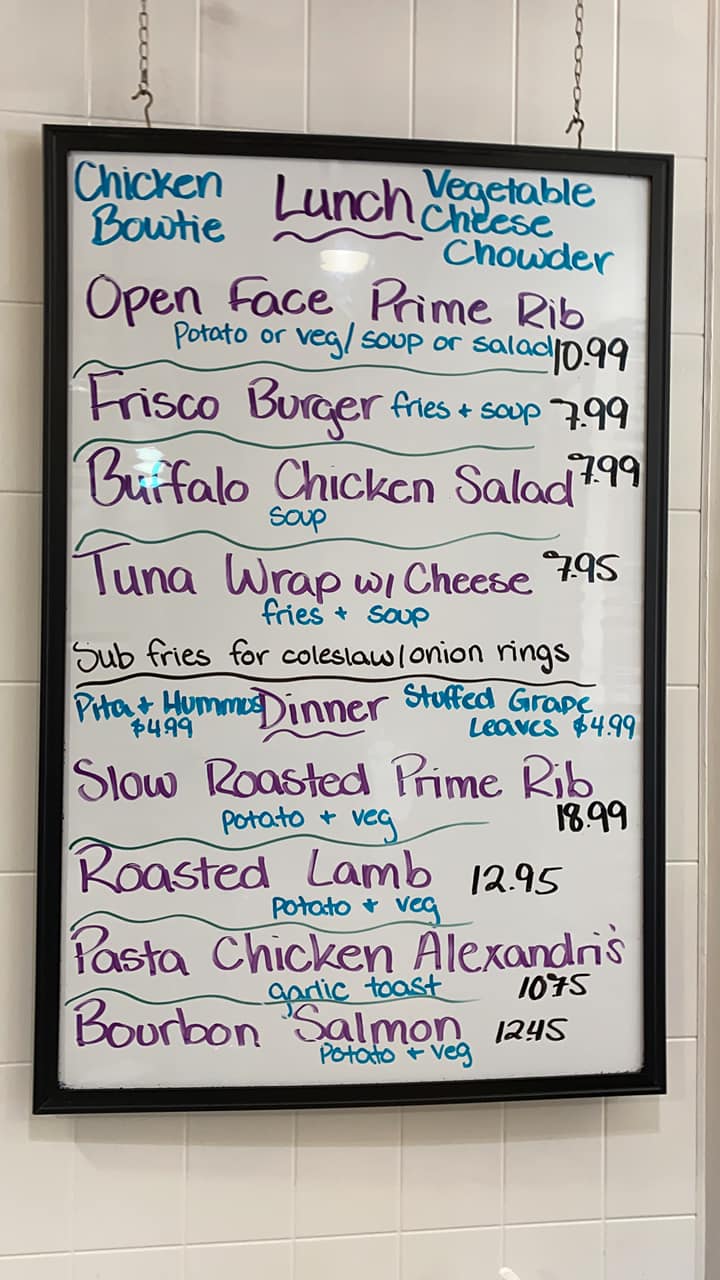 Chicken Bowtie
Lunch
Vegetable Cheese Chowder
Open Face Prime Rib
Potato or veg/ soup or salad 10.99
Frisco Burger fries + soup 7.99
Buffalo Chicken Salad 7.99
soup
Tuna Wrap w/ Cheese 7.95
fries + soup
Sub fries for coleslaw/onion rings
Pita + Hummus $4.99
Dinner
Stuffed Grape Leaves $4.99
Slow Roasted Prime Rib
potato + veg 18.99
Roasted Lamb 12.95
potato + veg
Pasta Chicken Alexandri's
garlic toast 10.75
Bourbon Salmon 12.45
Potato + veg